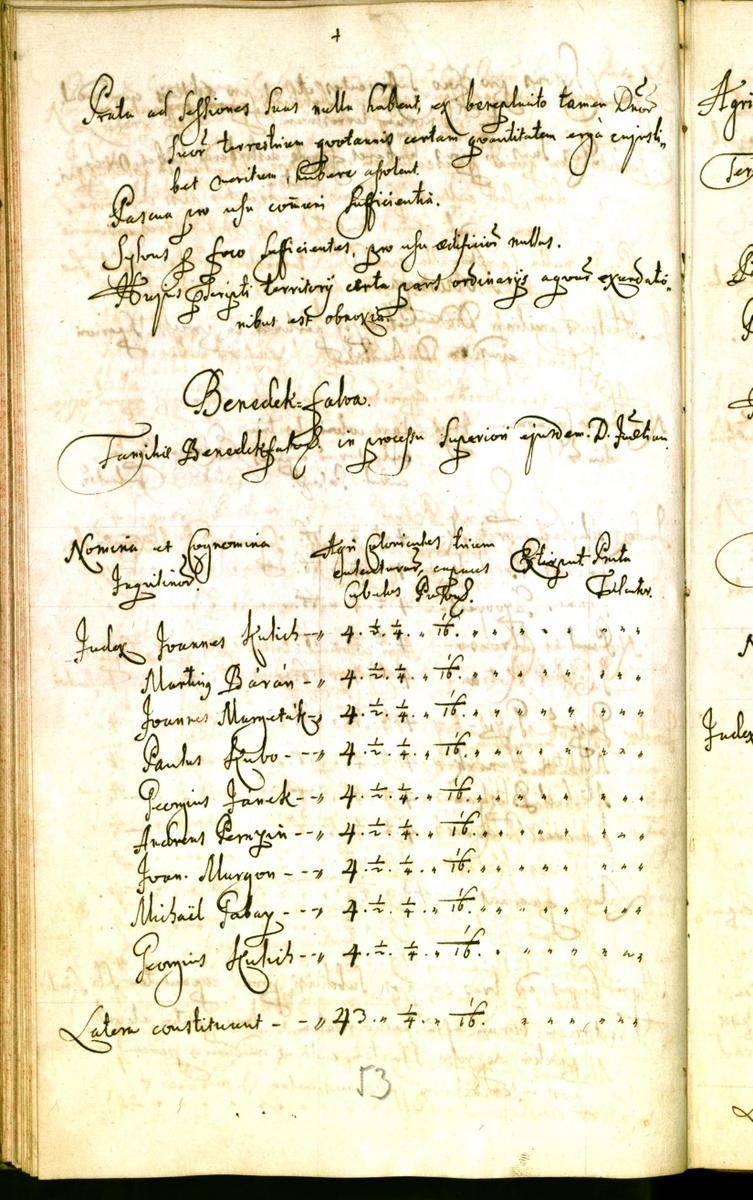 Prata ad Sessiones suas nulla habent, ex beneplacito tamen Dnor̃
suor̃ terrestrium quotannis certam quantitatem ergà cujusli„
bet meritum, habere assolent.
Pascua pro usu com̃uni sufficientia.
Sylvas p foco sufficientes, pro usu ædificior̃ nullas.
Hujus pscripti territorij certa pars ordinarijs aquar̃ exundatio„
nibus est obnoxia.
Benedek-falva.
Familiæ Benedekfalvy in processu Superiori ejusdem D.
Nomina et Cognomina
Inquilinor̃.
Agri Coloricales
capaces
Cubulos Poson.
Prata
Falcator̃.
Judex Joannes Kulich -„ 4. ½. ¼. „ 1/16. „ „ „ „ „ „ „
Martinꝰ Bárán - „ 4. ½. ¼. „ 1/16. „ „ „ „ „ „ „
Joannes Margeták -„ 4. ½. ¼. „ 1/16. „ „ „ „ „ „ „
Paulus Kubo - - -„ 4. ½. ¼. „ 1/16. „ „ „ „ „ „ „
Georgius Jánek - -„ 4. ½. ¼. „ 1/16. „ „ „ „ „ „ „
Andreas - -„ 4. ½. ¼. „ 1/16. „ „ „ „ „ „ „
Joan. Murgon - - -„ 4. ½. ¼. „ 1/16. „ „ „ „ „ „ „
Michaël Gabay - - -„ 4. ½. ¼. „ 1/16. „ „ „ „ „ „ „
Georgius Kulich - -„ 4. ½. ¼. „ 1/16. „ „ „ „ „ „ „
Latera constituunt - - „ 43. „ ¼. „ 1/16. „ „ „ „ „
53
Agri
Judex